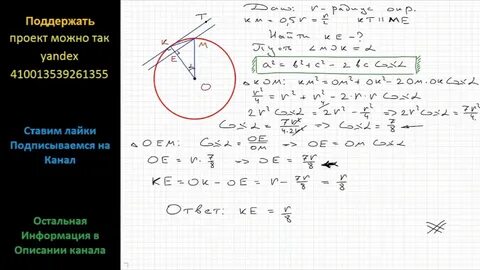 Поддержать
проект можно так
yandex
410013539261355
Ставим лайки
Подписываемся на
Канал
Остальная
Информация в
Описании канала
T
K
M
E
α
O
Дано: r - радиус окр.
KM = 0,5r = r/2 KT || ME
Найти KE - ?
Пусть ∠MOK = α
a² = b² + c² - 2bc Cosα
△KOM: KM² = OM² + OK² - 2OM·OK Cosα
r²/4 = r² + r² - 2·r·r Cosα
2r² Cosα = 2r² - r²/4 => 2r² Cosα = 7r²/4
Cosα = 7r²/4·2r² => Cosα = 7/8
△OEM: Cosα = OE/OM => OE = OM Cosα
OE = r·7/8 => OE = 7r/8
KE = OK - OE = r - 7r/8 = r/8
Ответ: KE = r/8